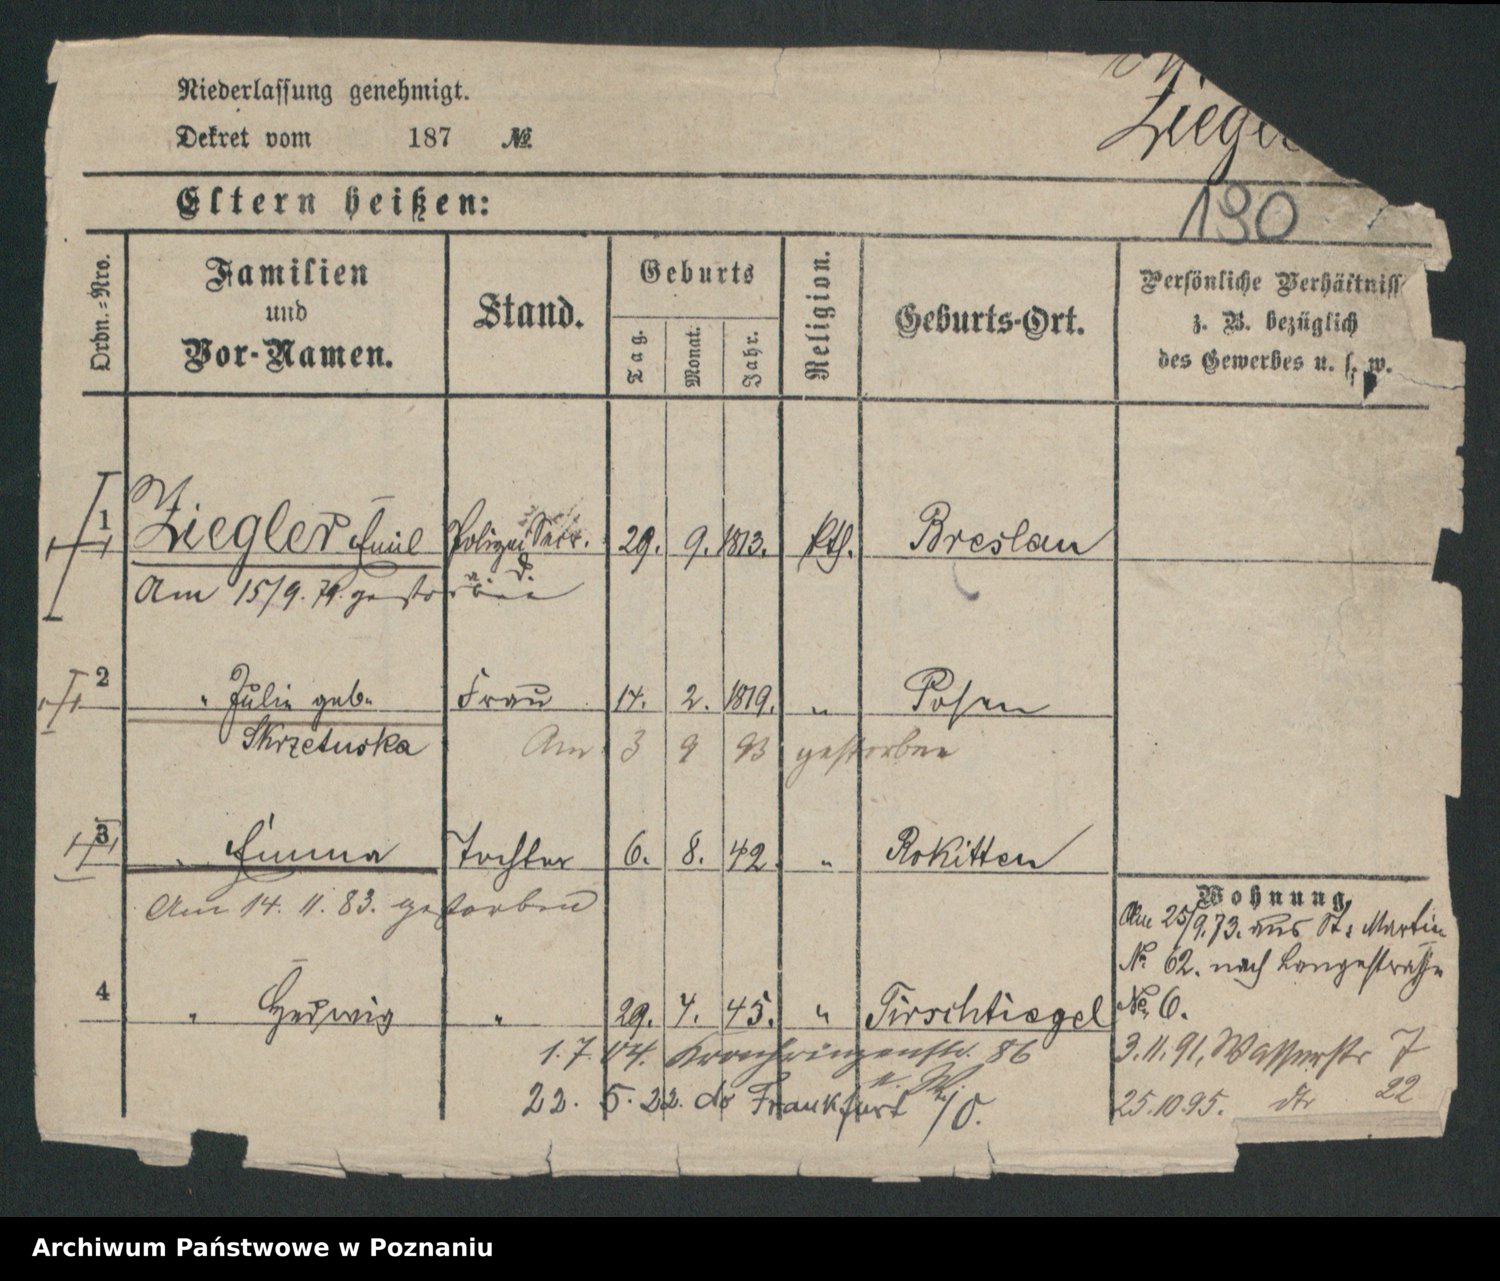 Niederlassung genehmigt.
Dekret vom 187 №
Ziegle
Eltern heißen:
190
Ordn.-Nro.
Familien und Vor-Namen.
Stand.
Geburts
Tag.
Monat.
Jahr.
Religion.
Geburts-Ort.
Persönliche Verhältniss
z. B. bezüglich
des Gewerbes u. s. w.
1 Ziegler Emil Polizei Secr. 29. 9. 1813. kth. Breslau
a. D.
Am 15/9. 79. gestorben
2 " Julie geb. Frau 14. 2. 1819. " Posen
Skrzetuska Am 3 9 93 gestorben
3 " Emma Tochter 6. 8. 42. " Rokitten
Am 14. 11. 83. gestorben
4 " Hedwig " 29. 4. 45. " Tirschtiegel
1. 7. 04. Kronprinzenstr. 86
22. 5. 22. do Frankfurt a/O.
Wohnung.
Am 25/9.73. aus St: Martin
No. 62. nach Langestraße
No. 6.
3.11.91, Wasserstr 7
25.10.95. dto 22
Archiwum Państwowe w Poznaniu